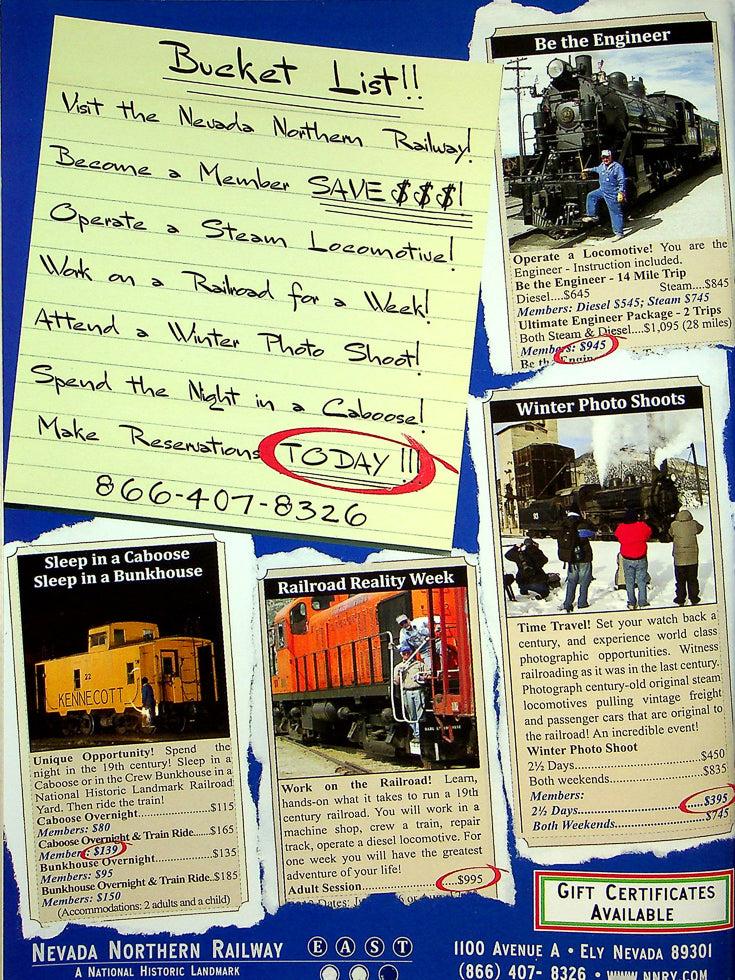 Bucket List!!
Visit the Nevada Northern Railway!
Become a Member SAVE $$$!
Operate a Steam Locomotive!
Work on a Railroad for a Week!
Attend a Winter Photo Shoot!
Spend the Night in a Caboose!
Make Reservations TODAY !!!
866-407-8326
Be the Engineer
Operate a Locomotive! You are the
Engineer - Instruction included.
Be the Engineer - 14 Mile Trip
Diesel....$645 Steam....$845
Members: Diesel $545; Steam $745
Ultimate Engineer Package - 2 Trips
Both Steam & Diesel....$1,095 (28 miles)
Members: $945
Be the Engin
Winter Photo Shoots
93
Time Travel! Set your watch back a
century, and experience world class
photographic opportunities. Witness
railroading as it was in the last century.
Photograph century-old original steam
locomotives pulling vintage freight
and passenger cars that are original to
the railroad! An incredible event!
Winter Photo Shoot
2½ Days....................................$450
Both weekends.........................$835
Members:
2½ Days....................................$395
Both Weekends.........................$745
Sleep in a Caboose
Sleep in a Bunkhouse
22
KENNECOTT
Unique Opportunity! Spend the
night in the 19th century! Sleep in a
Caboose or in the Crew Bunkhouse in a
National Historic Landmark Railroad
Yard. Then ride the train!
Caboose Overnight....................$115
Members: $80
Caboose Overnight & Train Ride.....$165
Members: $139
Bunkhouse Overnight................$135
Members: $95
Bunkhouse Overnight & Train Ride..$185
Members: $150
(Accommodations: 2 adults and a child)
Railroad Reality Week
Work on the Railroad! Learn,
hands-on what it takes to run a 19th
century railroad. You will work in a
machine shop, crew a train, repair
track, operate a diesel locomotive. For
one week you will have the greatest
adventure of your life!
Adult Session....................$995
Dates:
GIFT CERTIFICATES
AVAILABLE
NEVADA NORTHERN RAILWAY
A NATIONAL HISTORIC LANDMARK
E A S T
1100 AVENUE A • ELY NEVADA 89301
(866) 407- 8326 • WWW.NNRY.COM